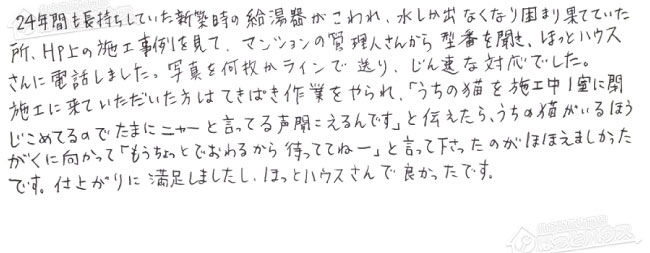 24年間も長持ちしていた新築時の給湯器がこわれ、水しか出なくなり困まり果てていた
所、HP上の施工事例を見て、マンションの管理人さんから型番を聞き、ほっとハウス
さんに電話しました。写真を何枚かラインで送り、じん速な対応でした。
施工に来ていただいた方はてきぱき作業をやられ、「うちの猫を施工中1室に閉
じこめてるのでたまにニャーと言ってる声聞こえるんです」と伝えたら、うちの猫がいるほう
がくに向かって「もうちょっとでおわるから待っててねー」と言って下さったのがほほえましかった
です。仕上がりに満足しましたし、ほっとハウスさんで良かったです。